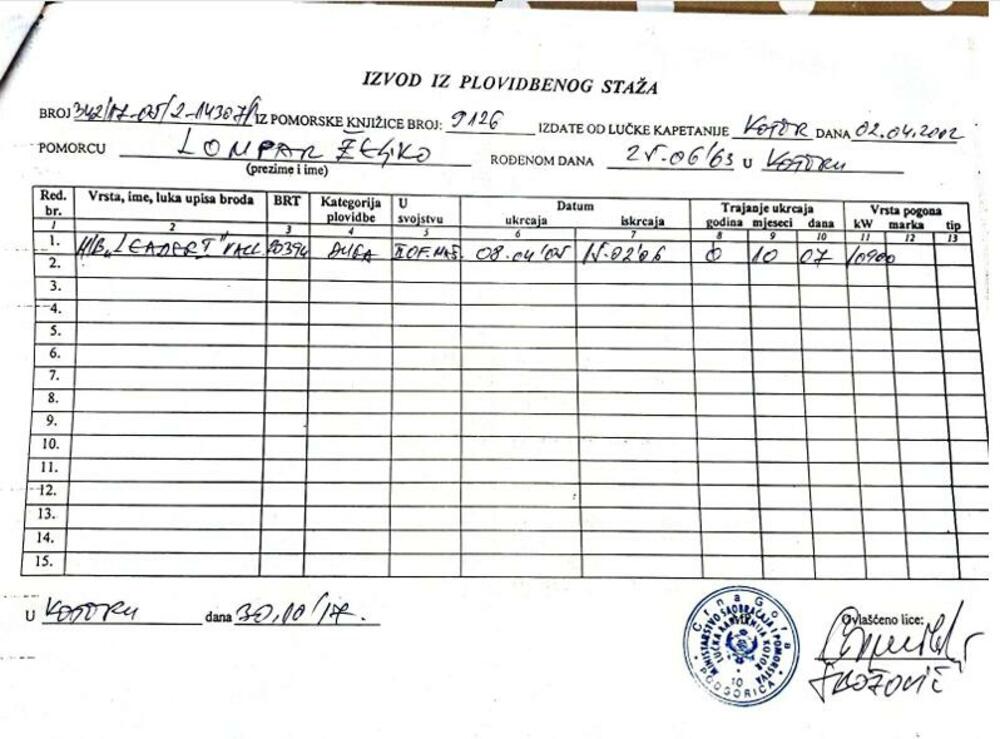 IZVOD IZ PLOVIDBENOG STAŽA
BROJ 342/17-05/2-14307/1 IZ POMORSKE KNJIŽICE BROJ: 9126 IZDATE OD LUČKE KAPETANIJE KOTOR DANA 02.04.2002
POMORCU LOMPAR ŽELJKO ROĐENOM DANA 25.06'63 U KOTORU
(prezime i ime)
Red. br. Vrsta, ime, luka upisa broda BRT Kategorija plovidbe U svojstvu Datum ukrcaja iskrcaja Trajanje ukrcaja godina mjeseci dana Vrsta pogona kW marka tip
1 2 3 4 5 6 7 8 9 10 11 12 13
1. M/B "LEADER I" VALL. DUGA II OF. MAŠ. 08.04'05 15.02'06 0 10 07 10900
2.
3.
4.
5.
6.
7.
8.
9.
10.
11.
12.
13.
14.
15.
U KOTORU dana 30.10/17.
Ovlašćeno lice:
Crna Gora
MINISTARSTVO SAOBRAĆAJA I POMORSTVA
LUČKA KAPETANIJA KOTOR
10
PODGORICA